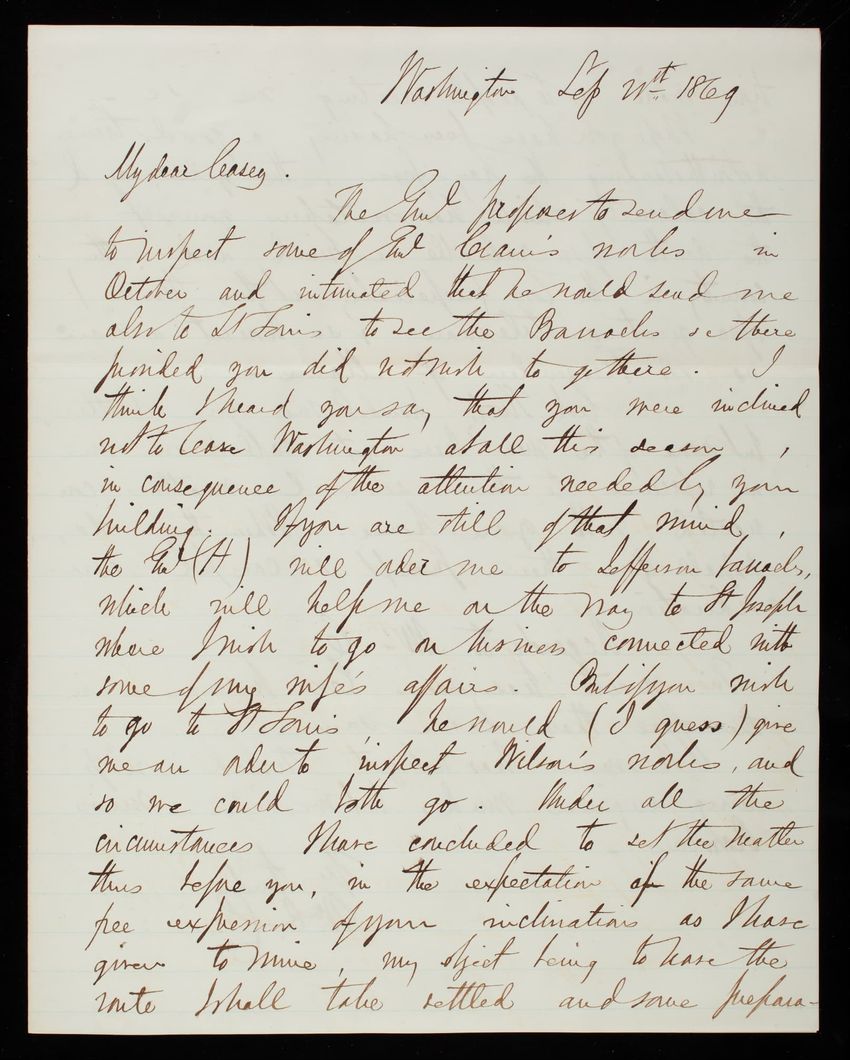 Washington Sep 21st 1869
My dear Casey.
The Genl proposes to send me
to inspect some of Genl Cram's works in
October and intimated that he would send me
also to St Louis to see the Barracks &c there
provided you did not wish to go there. I
think I heard you say that you were inclined
not to leave Washington at all this season,
in consequence of the attention needed by your
building. If you are still of that mind,
the Genl (H) will order me to Jefferson barracks,
which will help me on the way to St Joseph
where I wish to go on business connected with
some of my wife's affairs. But if you wish
to go to St Louis, he would (I guess) give
me an order to inspect Wilson's works, and
so we could both go. Under all the
circumstances I have concluded to set the matter
thus before you, in the expectation of the same
free expression of your inclinations as I have
given to mine, my object being to have the
route I shall take settled and some prepara-